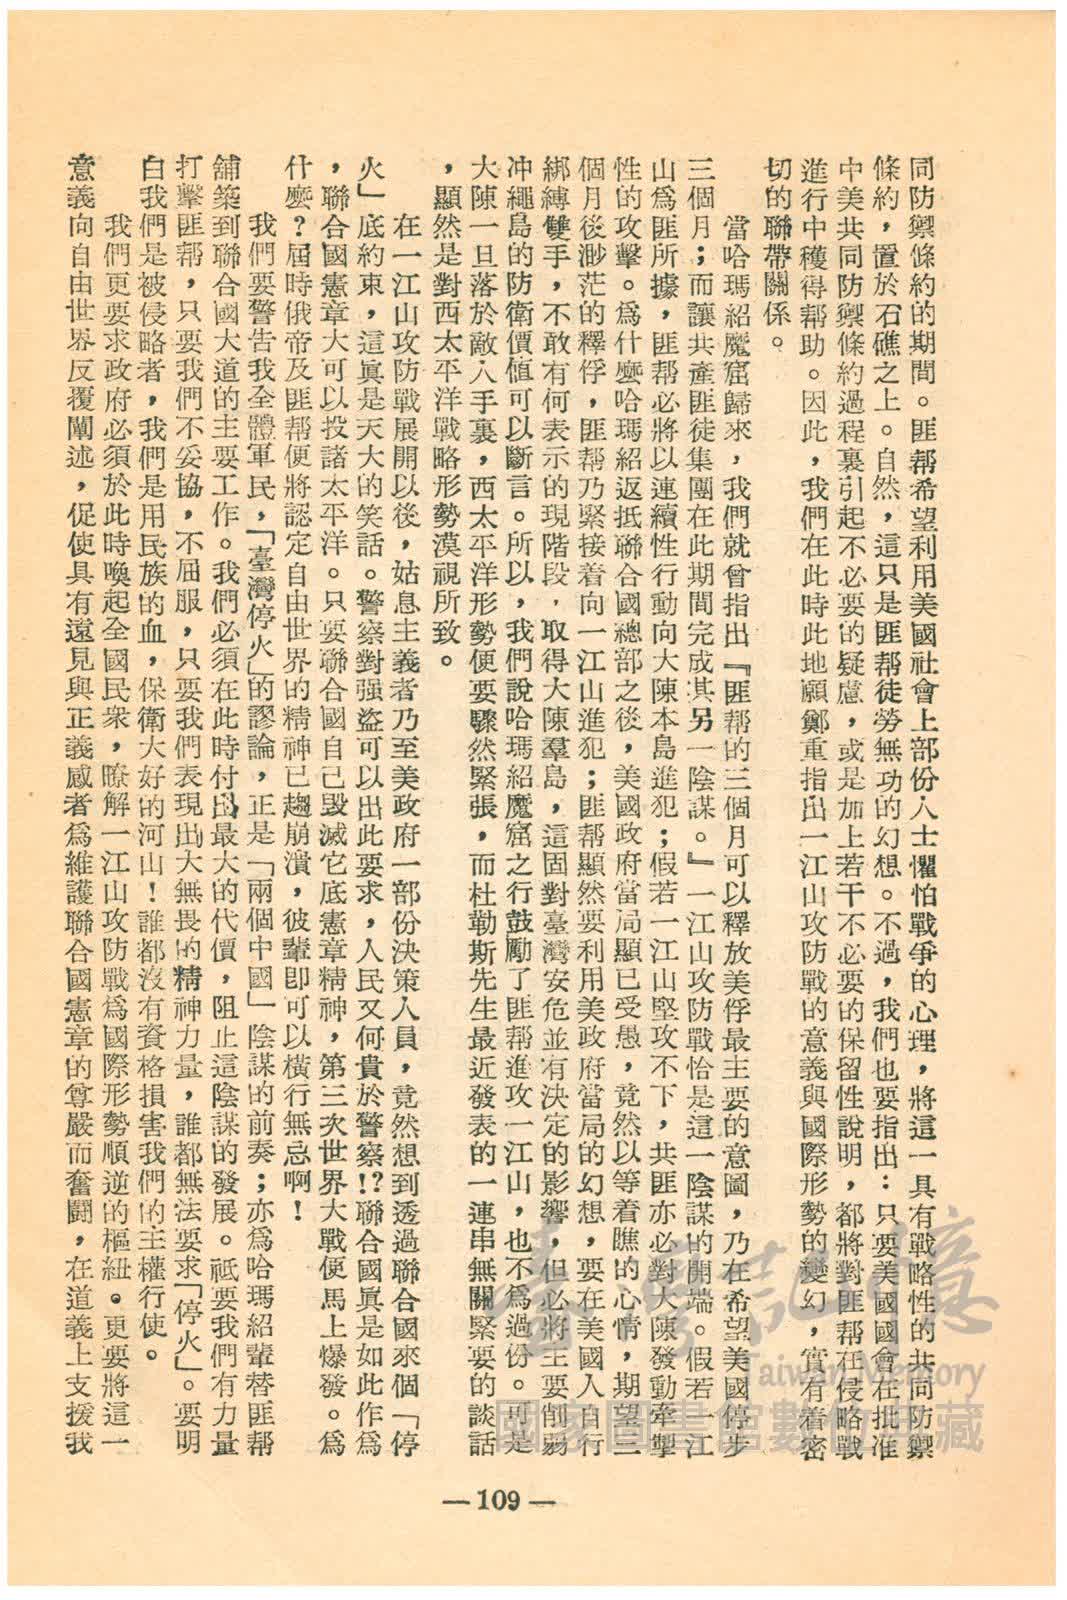 同防禦條約的期間。匪帮希望利用美國社會上部份人士懼怕戰爭的心理，將這一具有戰略性的共同防禦
條約，置於石礁之上。自然，這只是匪帮徒勞無功的幻想。不過，我們也要指出：只要美國國會在批准
中美共同防禦條約過程裏引起不必要的疑慮，或是加上若干不必要的保留性說明，都將對匪帮在侵略戰
進行中穫得帮助。因此，我們在此時此地願鄭重指出一江山攻防戰的意義與國際形勢的變幻，實有着密
切的聯帶關係。
當哈瑪紹魔窟歸來，我們就曾指出『匪帮的三個月可以釋放美俘最主要的意圖，乃在希望美國停步
三個月；而讓共產匪徒集團在此期間完成其另一陰謀。』一江山攻防戰恰是這一陰謀的開端。假若一江
山爲匪所據，匪帮必將以連續性行動向大陳本島進犯；假若一江山堅攻不下，共匪亦必對大陳發動牽掣
性的攻擊。爲什麼哈瑪紹返抵聯合國總部之後，美國政府當局顯已受愚，竟然以等着瞧的心情，期望三
個月後渺茫的釋俘，匪帮乃緊接着向一江山進犯；匪帮顯然要利用美政府當局的幻想，要在美國人自行
綁縛雙手，不敢有何表示的現階段，取得大陳羣島，這固對臺灣安危並有決定的影響，但必將主要削弱
冲繩島的防衛價値可以斷言。所以，我們說哈瑪紹魔窟之行鼓勵了匪帮進攻一江山，也不爲過份。可是
大陳一旦落於敵人手裏，西太平洋形勢便要驟然緊張，而杜勒斯先生最近發表的一連串無關緊要的談話
，顯然是對西太平洋戰略形勢漠視所致。
在一江山攻防戰展開以後，姑息主義者乃至美政府一部份決策人員，竟然想到透過聯合國來個「停
火」底約束，這眞是天大的笑話。警察對强盜可以出此要求，人民又何貴於警察！？聯合國眞是如此作爲
，聯合國憲章大可以投諸太平洋。只要聯合國自己毀滅它底憲章精神，第三次世界大戰便馬上爆發。爲
什麼？屆時俄帝及匪帮便將認定自由世界的精神已趨崩潰，彼輩卽可以橫行無忌啊！
我們要警告我全體軍民，「臺灣停火」的謬論，正是「兩個中國」陰謀的前奏；亦爲哈瑪紹輩替匪帮
舖築到聯合國大道的主要工作。我們必須在此時付出最大的代價，阻止這陰謀的發展。祇要我們有力量
打擊匪帮，只要我們不妥協，不屈服，只要我們表現出大無畏的精神力量，誰都無法要求「停火」。要明
白我們是被侵略者，我們是用民族的血，保衛大好的河山！誰都沒有資格損害我們的主權行使。
我們更要求政府必須於此時喚起全國民衆，瞭解一江山攻防戰爲國際形勢順逆的樞紐。更要將這一
意義向自由世界反覆闡述，促使具有遠見與正義感者爲維護聯合國憲章的尊嚴而奮鬪，在道義上支援我
—109—
臺灣記憶
Taiwan Memory
國家圖書館數位典藏